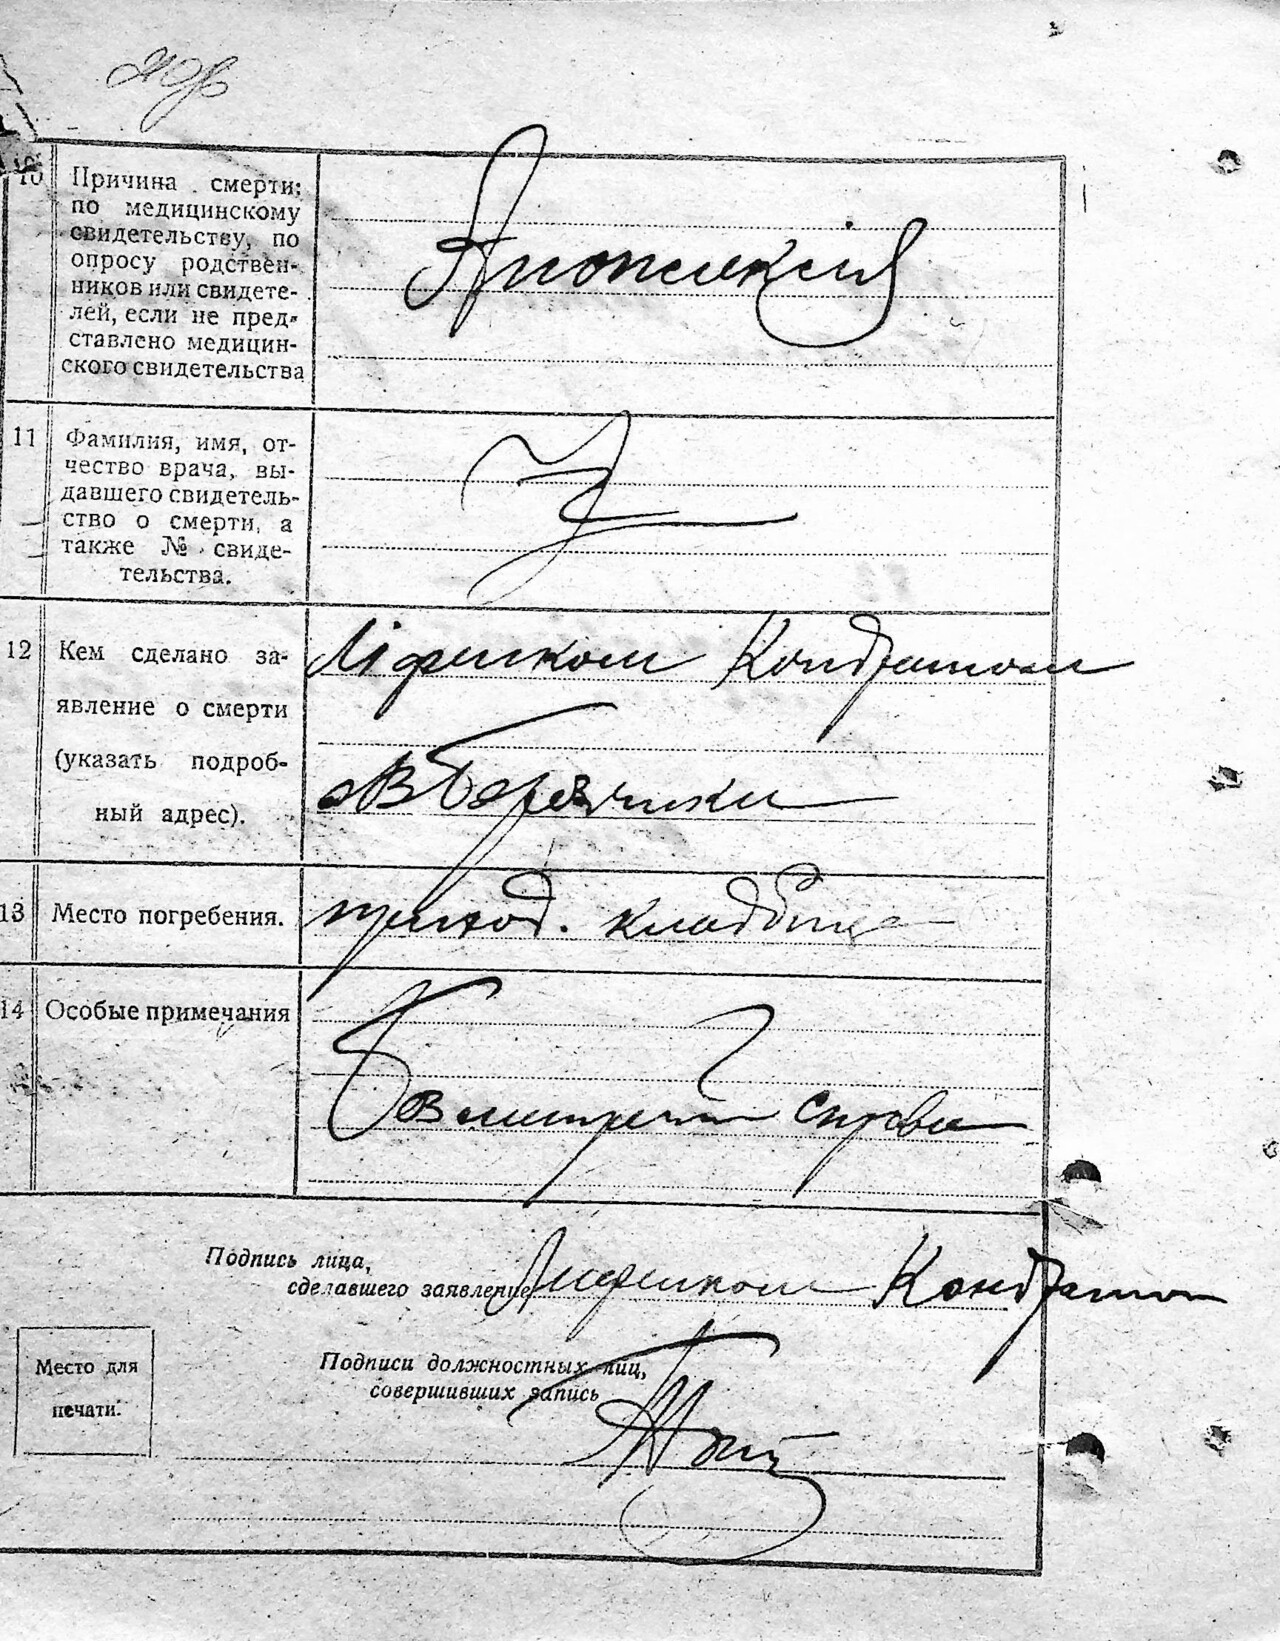 10
Причина смерти:
по медицинскому
свидетельству, по
опросу родствен-
ников или свидете-
лей, если не пред-
ставлено медицин-
ского свидетельства
Апоплексия
11
Фамилия, имя, от-
чество врача, вы-
давшего свидетель-
ство о смерти, а
также № свиде-
тельства.
12
Кем сделано за-
явление о смерти
(указать подроб-
ный адрес).
Кондратом
13
Место погребения.
приход. кладбище
14
Особые примечания
Подпись лица,
сделавшего заявление
Кондратом
Место для
печати.
Подписи должностных лиц,
совершивших запись